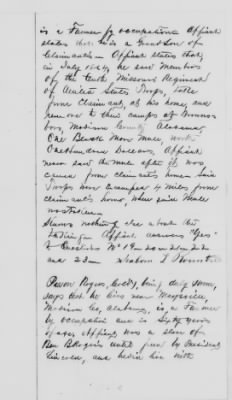 is a Farmer by occupation Affiant
states that he is a Grandson of
Claimant. Affiant states that
in July 1864 he saw Members
of the tenth Missouri Regiment
of United States Troops, take
from Claimant, at his home, and
remove to their camps at
Madison County Alabama
One Black Mare Mule, worth
One Hundred Dollars, Affiant
never saw the mule after it was
carried from claimants home. Said
Troops were Encamped 4 miles from
claimants home, when said Mule
was taken.
Knows nothing else about the
Affiant answers "Yes"
to Questions No 19
and 23
being duly sworn,
says that he lives near Maysville,
Madison Co, Alabama, is a Farmer
by occupation and is Sixty years
of age, Affiant was a slave of
Ben Rogers until freed by President
Lincoln, and lived with